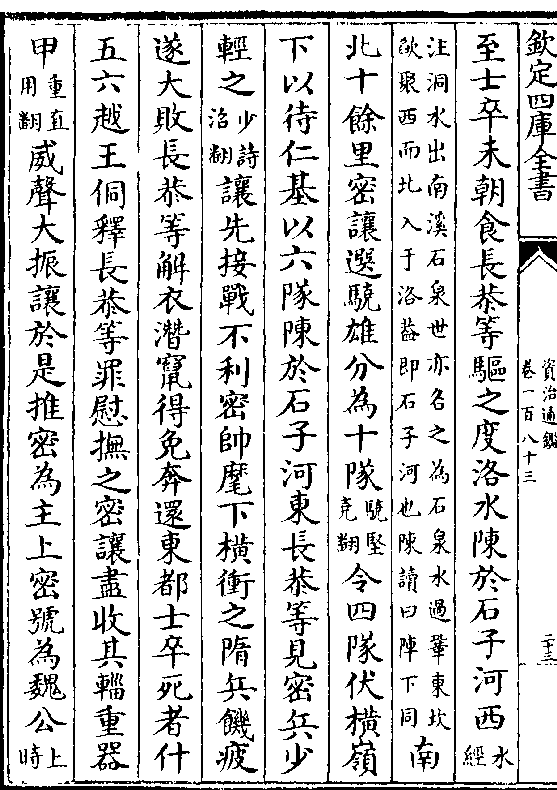 欽定四庫全書
資治通鑑
卷一百八十三
二十三
至士卒未朝食長恭等驅之度洛水陳於石子河西水
經
注洞水出南溪石泉世亦名之為石泉水過鞏東坎
欿聚西而北入于洛葢即石子河也陳讀曰陣下同
南
北十餘里密讓選驍雄分為十隊驍堅
堯翻
令四隊伏橫嶺
下以待仁基以六隊陳於石子河東長恭等見密兵少
輕之少詩
沼翻
讓先接戰不利密帥麾下橫衝之隋兵饑疲
遂大敗長恭等解衣潛竄得免奔還東都士卒死者什
五六越王侗釋長恭等罪慰撫之密讓盡收其輜重器
甲重直
用翻
威聲大振讓於是推密為主上密號為魏公上
時